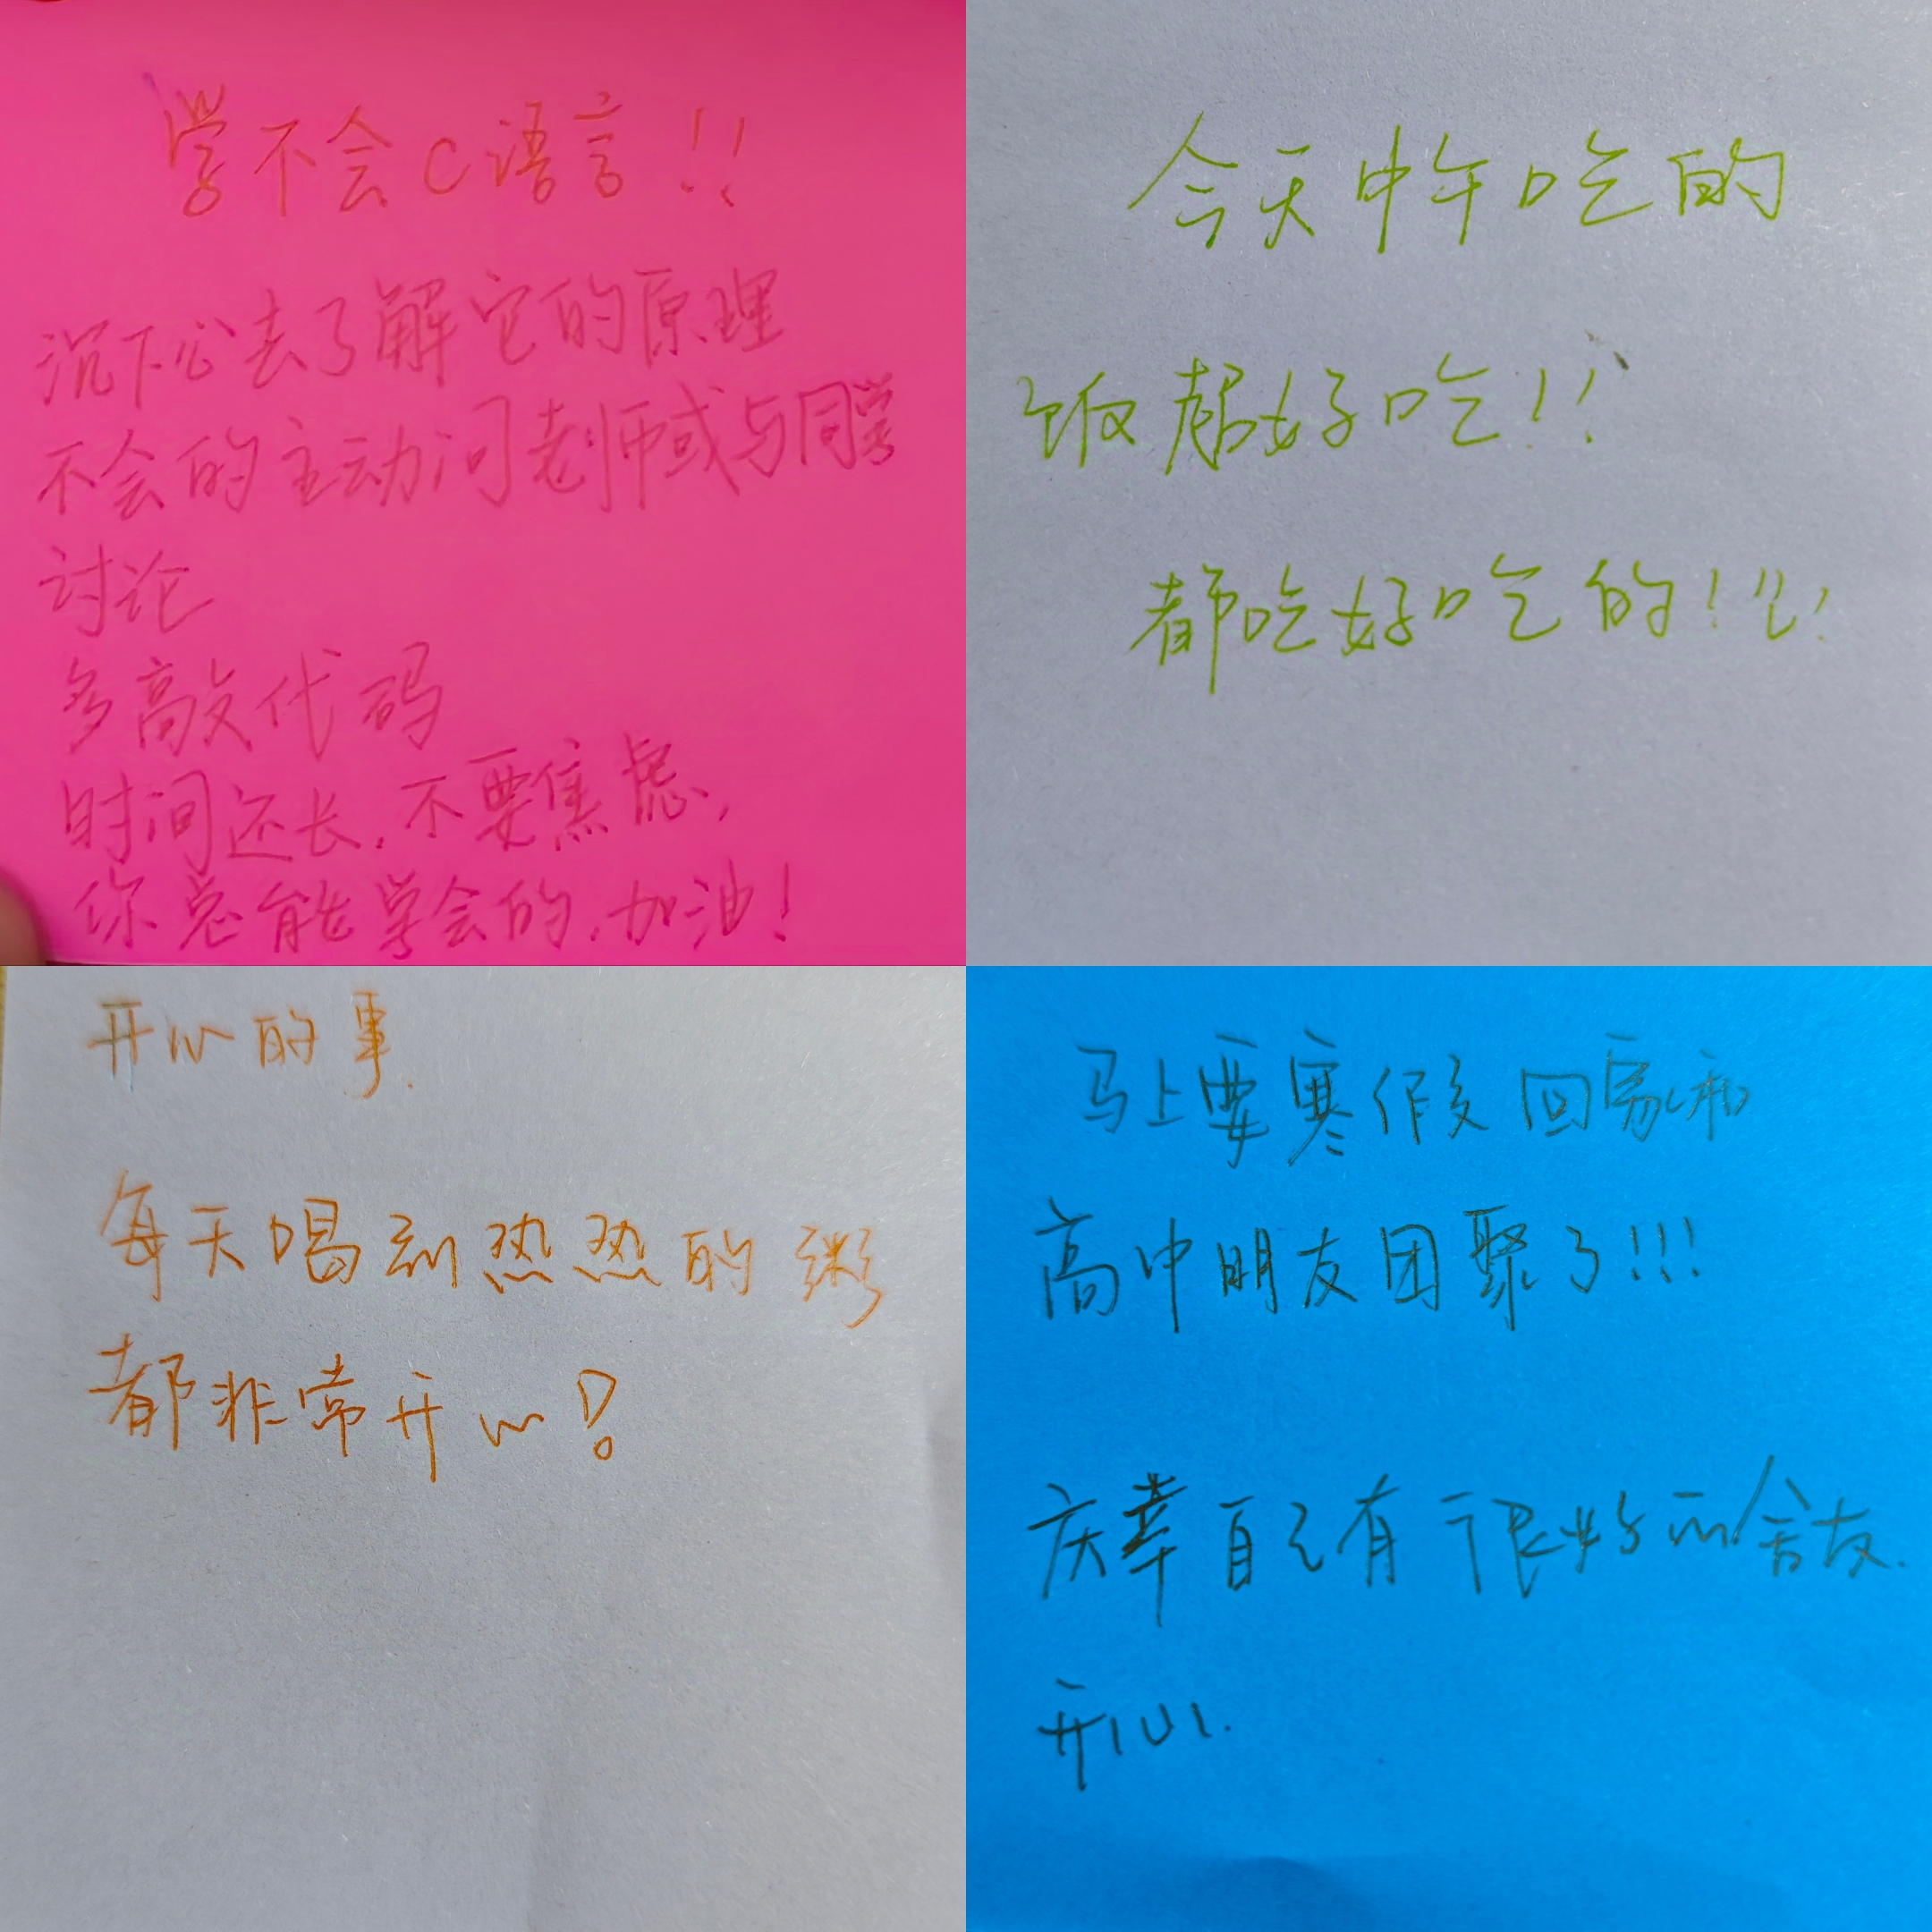 学不会C语言!!
沉下心去了解它的原理
不会的主动问老师或与同学
讨论
多高文代码
时间还长,不要焦虑,
你总能学会的,加油!
今天中午吃的
饭超好吃!!
都吃好吃的!!!
开心的事.
每天喝到热热的粥
都非常开心!
马上要寒假回家和
高中朋友团聚了!!!
庆幸自己有很好的舍友.
开心.